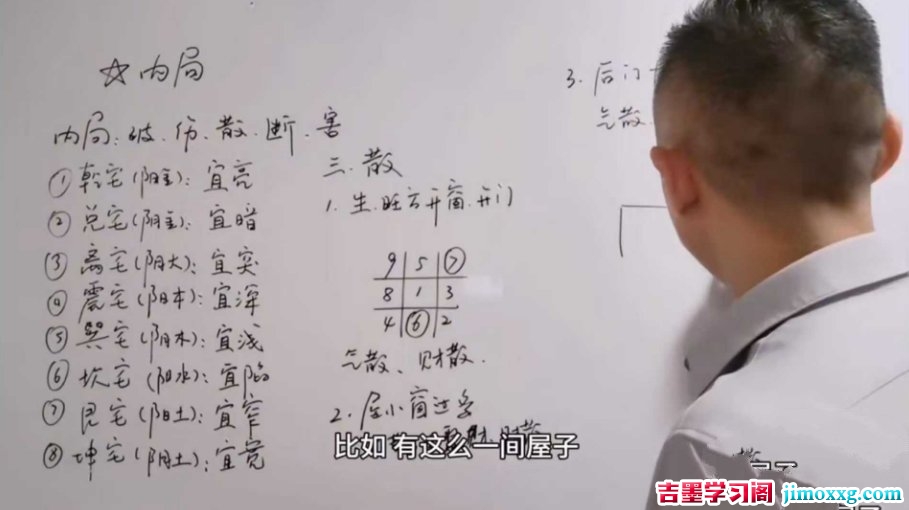 ☆内局
内局:破.伤.散.断.害
①乾宅(阳金):宜亮
②兑宅(阴金):宜暗
③离宅(阴火):宜突
④震宅(阳木):宜深
⑤巽宅(阴木):宜浅
⑥坎宅(阳水):宜陷
⑦艮宅(阳土):宜窄
⑧坤宅(阴土):宜宽
三.散
1.生.旺方开窗.开门
9 5 ⑦
8 1 3
4 ⑥ 2
气散、财散.
2.屋小窗过多
财散
3.后门
气散.
比如 有这么一间屋子
吉墨学习阁 jimoxxg.com